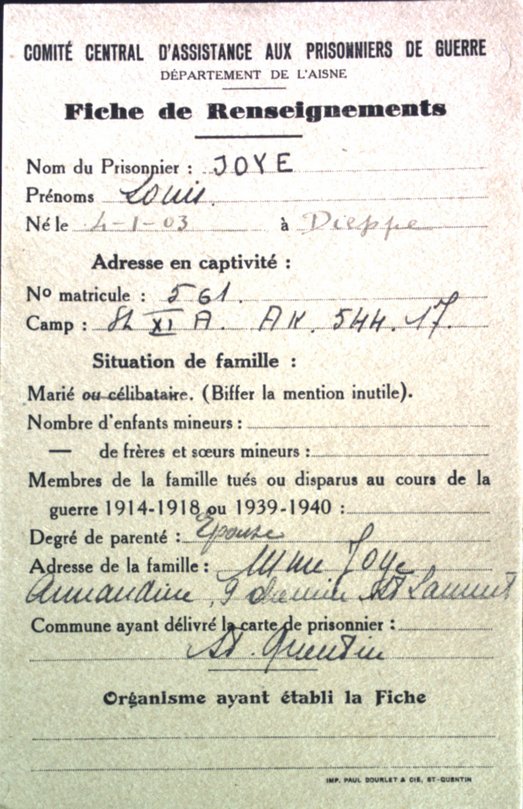 COMITÉ CENTRAL D'ASSISTANCE AUX PRISONNIERS DE GUERRE
DÉPARTEMENT DE L'AISNE
Fiche de Renseignements
Nom du Prisonnier : JOYE
Prénoms Louis.
Né le 4-1-03 à Dieppe
Adresse en captivité :
No matricule : 561.
Camp : XI A. AK. 544. 17.
Situation de famille :
Marié ou célibataire. (Biffer la mention inutile).
Nombre d'enfants mineurs :
— de frères et sœurs mineurs :
Membres de la famille tués ou disparus au cours de la
guerre 1914-1918 ou 1939-1940 :
Degré de parenté : Epouse
Adresse de la famille : Mme Joye
9 chemin St
Commune ayant délivré la carte de prisonnier :
St. Quentin
Organisme ayant établi la Fiche
IMP. PAUL DOURLET & CIE, ST-QUENTIN